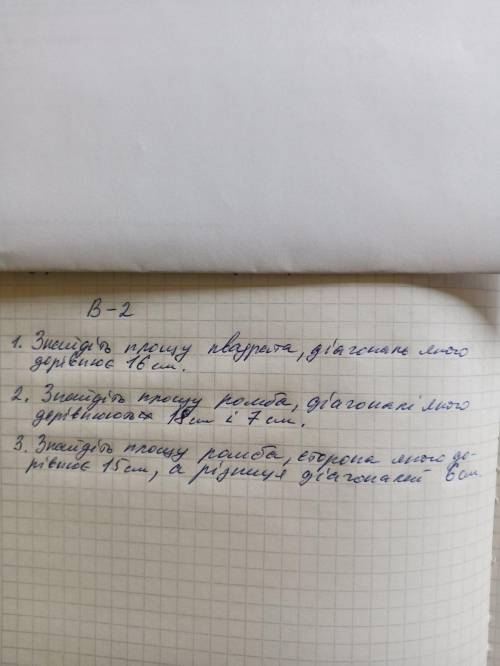 В-2
1. Знайдіть площу квадрата, діагональ якого
дорівнює 16 см.
2. Знайдіть площу ромба, діагоналі якого
дорівнюють 18 см і 7 см.
3. Знайдіть площу ромба, сторона якого до-
рівнює 15 см, а різниця діагоналей 6 см.